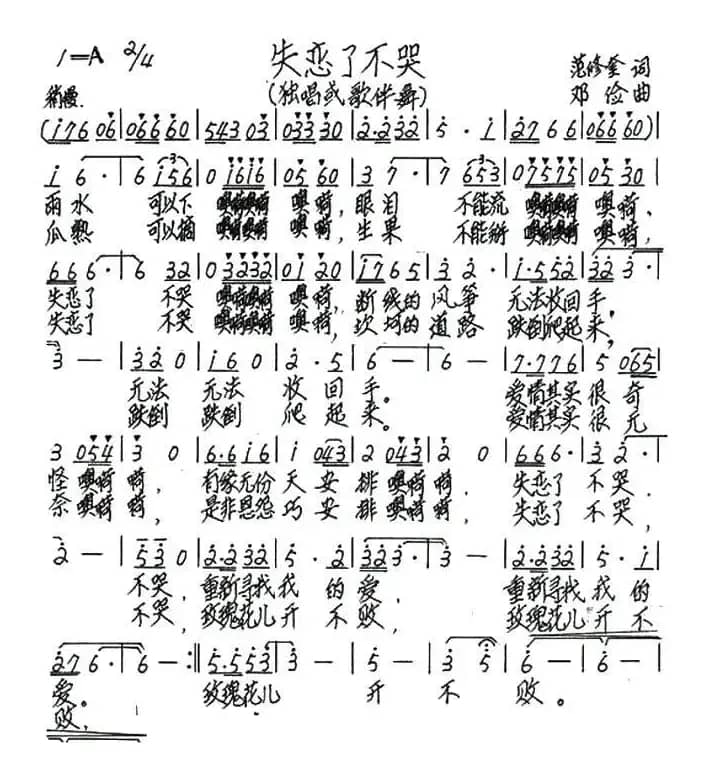 1=A 2/4 失恋了不哭 范修奎 词
稍慢. (独唱或歌伴舞) 邓俭 曲
(i76 06|06660|543 03|03330|2·232|5·i|2766|06660)|
i 6·|6 i56|0 i6i6|0560|3 7·|7 653|07575|0530|
雨水 可以下 噢嗬噢嗬 噢嗬,眼泪 不能流 噢嗬噢嗬 噢嗬、
瓜熟 可以摘 噢嗬噢嗬 噢嗬,生果 不能掰 噢嗬噢嗬 噢嗬,
666·|6 32|0 3232|0i 20|i765|3 2·|i·552|32 3·|
失恋了 不哭 噢嗬噢嗬 噢嗬,断线的风筝 无法收回手,
失恋了 不哭 噢嗬噢嗬 噢嗬,坎坷的道路 跌倒爬起来,
3 —|320|i60|2·5|6—|6—|7·776|5 065|
无法 无法 收回手。 爱情其实很奇
跌倒 跌倒 爬起来。 爱情其实很无
3 054|3 0|6·6i6|i 043|2 043|2 0|666·|3 2·|
怪噢嗬嗬, 有缘无份天安排噢嗬嗬, 失恋了不哭.
奈噢嗬嗬, 是非恩怨巧安排噢嗬嗬, 失恋了不哭,
2 —|530|2·232|5·2|323·|3—|2·232|5·i|
不哭,重新寻找我的爱, 重新寻找我的
不哭,玫瑰花儿开不败, 玫瑰花儿开不
276·|6—:||5·553|3—|5—|3 5|6—|6—|
爱。 玫瑰花儿 开不败。
败,